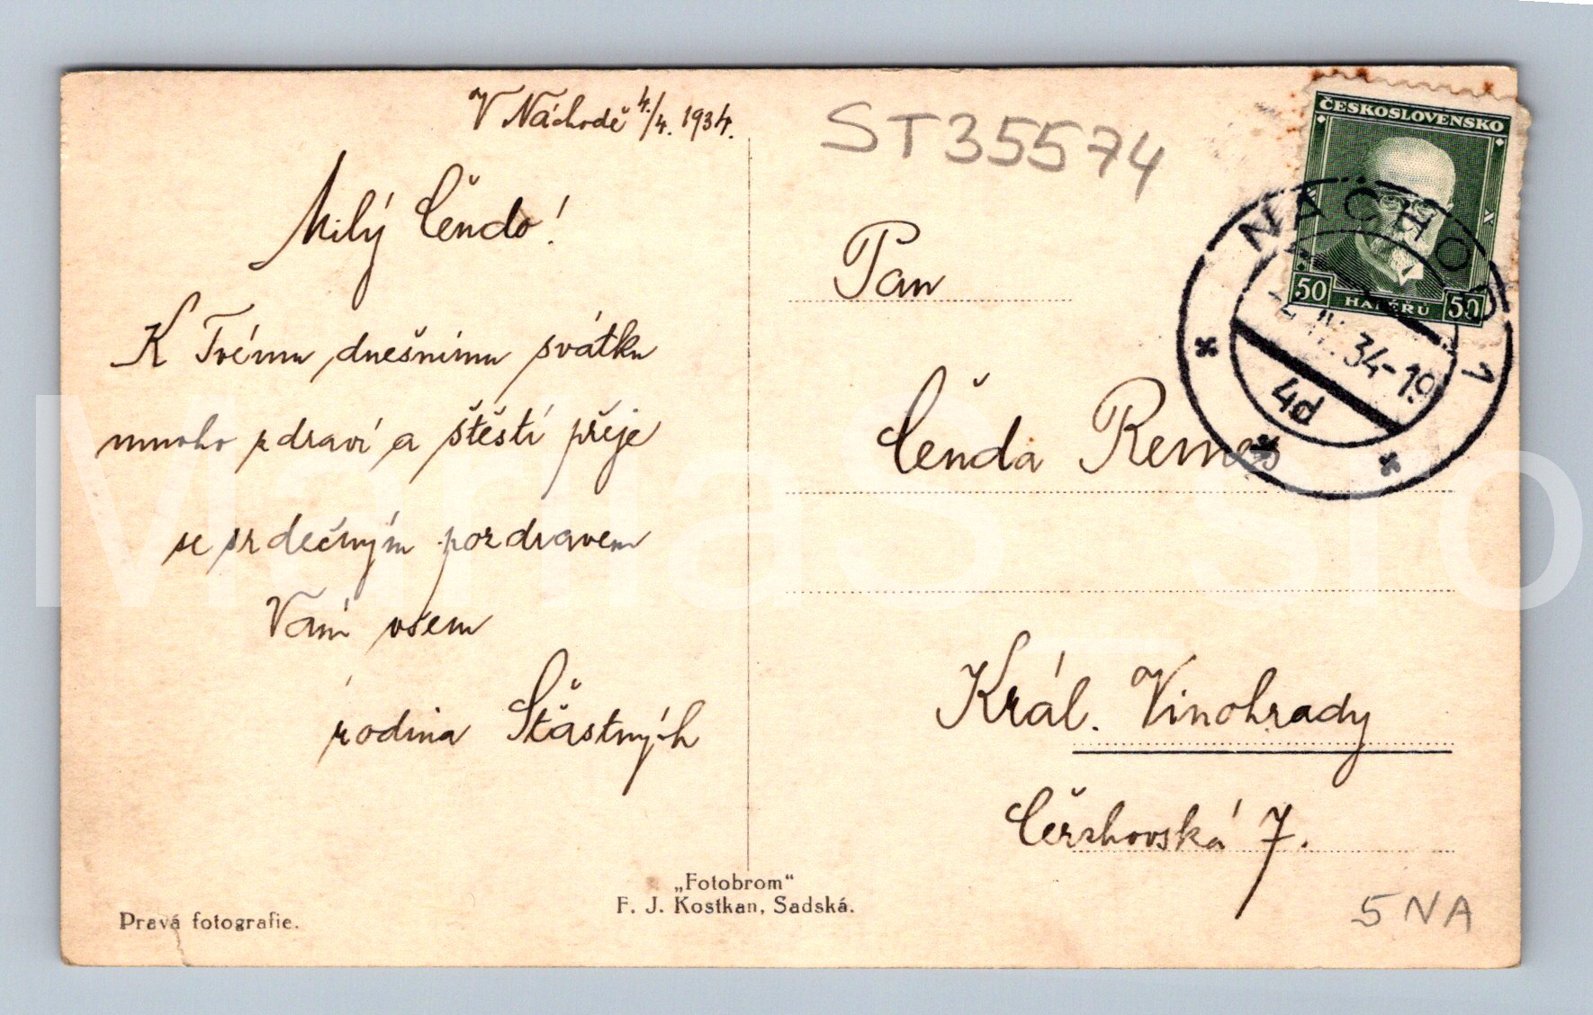 V Náchodě 4./4. 1934.
Milý Čendo!
K Tvému dnešnímu svátku
mnoho zdraví a štěstí přeje
se srdečným pozdravem
Vám všem
rodina Šťastných
ST35574
ČESKOSLOVENSKO
50 HALÉŘŮ 50
NÁCHOD 1
IV. 34-19
4d
Pan
Čenda Remes
Král. Vinohrady
Čerchovská 7.
„Fotobrom“
F. J. Kostkan, Sadská.
Pravá fotografie.
5 NA